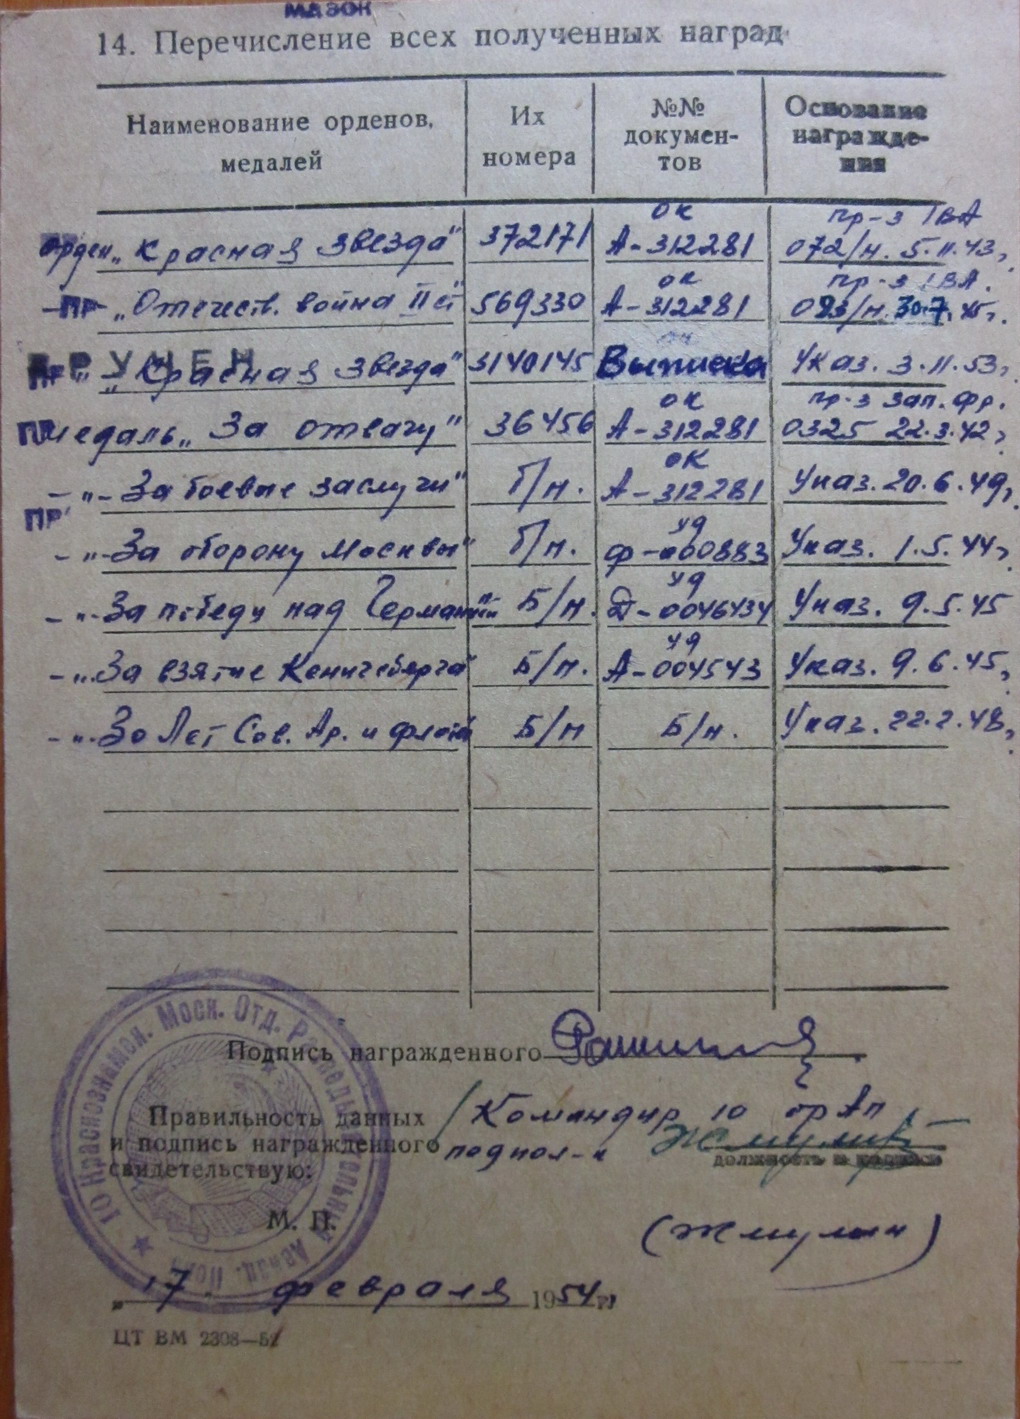 МАЗОК
14. Перечисление всех полученных наград
Наименование орденов, медалей
Их номера
№№ докумен-тов
Основание награжде-ния
орден „Красная звезда" 372171 ок А-312281 пр-з 1ВА 072/н. 5.11.43,
-ПР- „Отечеств. война II ст" 569330 ок А-312281 пр-з 1ВА. 083/н. 30.7.45г.
ВРУЧЕН
ПР „Красная звезда" 3140145 Выписка Указ. 3.11.53,
ПР медаль „За отвагу" 36456 ок А-312281 пр-з Зап. фр. 0325 22.3.42,
-"- За боевые заслуги" б/н. ок А-312281 Указ. 20.6.49,
ПР
-"- За оборону Москвы" б/н. уд Ф-000883 Указ. 1.5.44,
-"- За победу над Германией Б/н. уд Д-0046434 Указ. 9.5.45
-"- За взятие Кенигсберга" Б/н. уд А-004543 Указ. 9.6.45,
-"- 30 Лет Сов. Ар. и флота Б/н Б/н. Указ. 22.2.48,
Подпись награжденного
Правильность данных / Командир 10 орАп
и подпись награжденного подпол-к
свидетельствую:
должность и подпись
М. П.
(Жмулин)
„17" февраля 1954 г.
ЦТ ВМ 2308—52
10 Краснознамен. Моск. Отд. Разведывательный Авиац. Полк